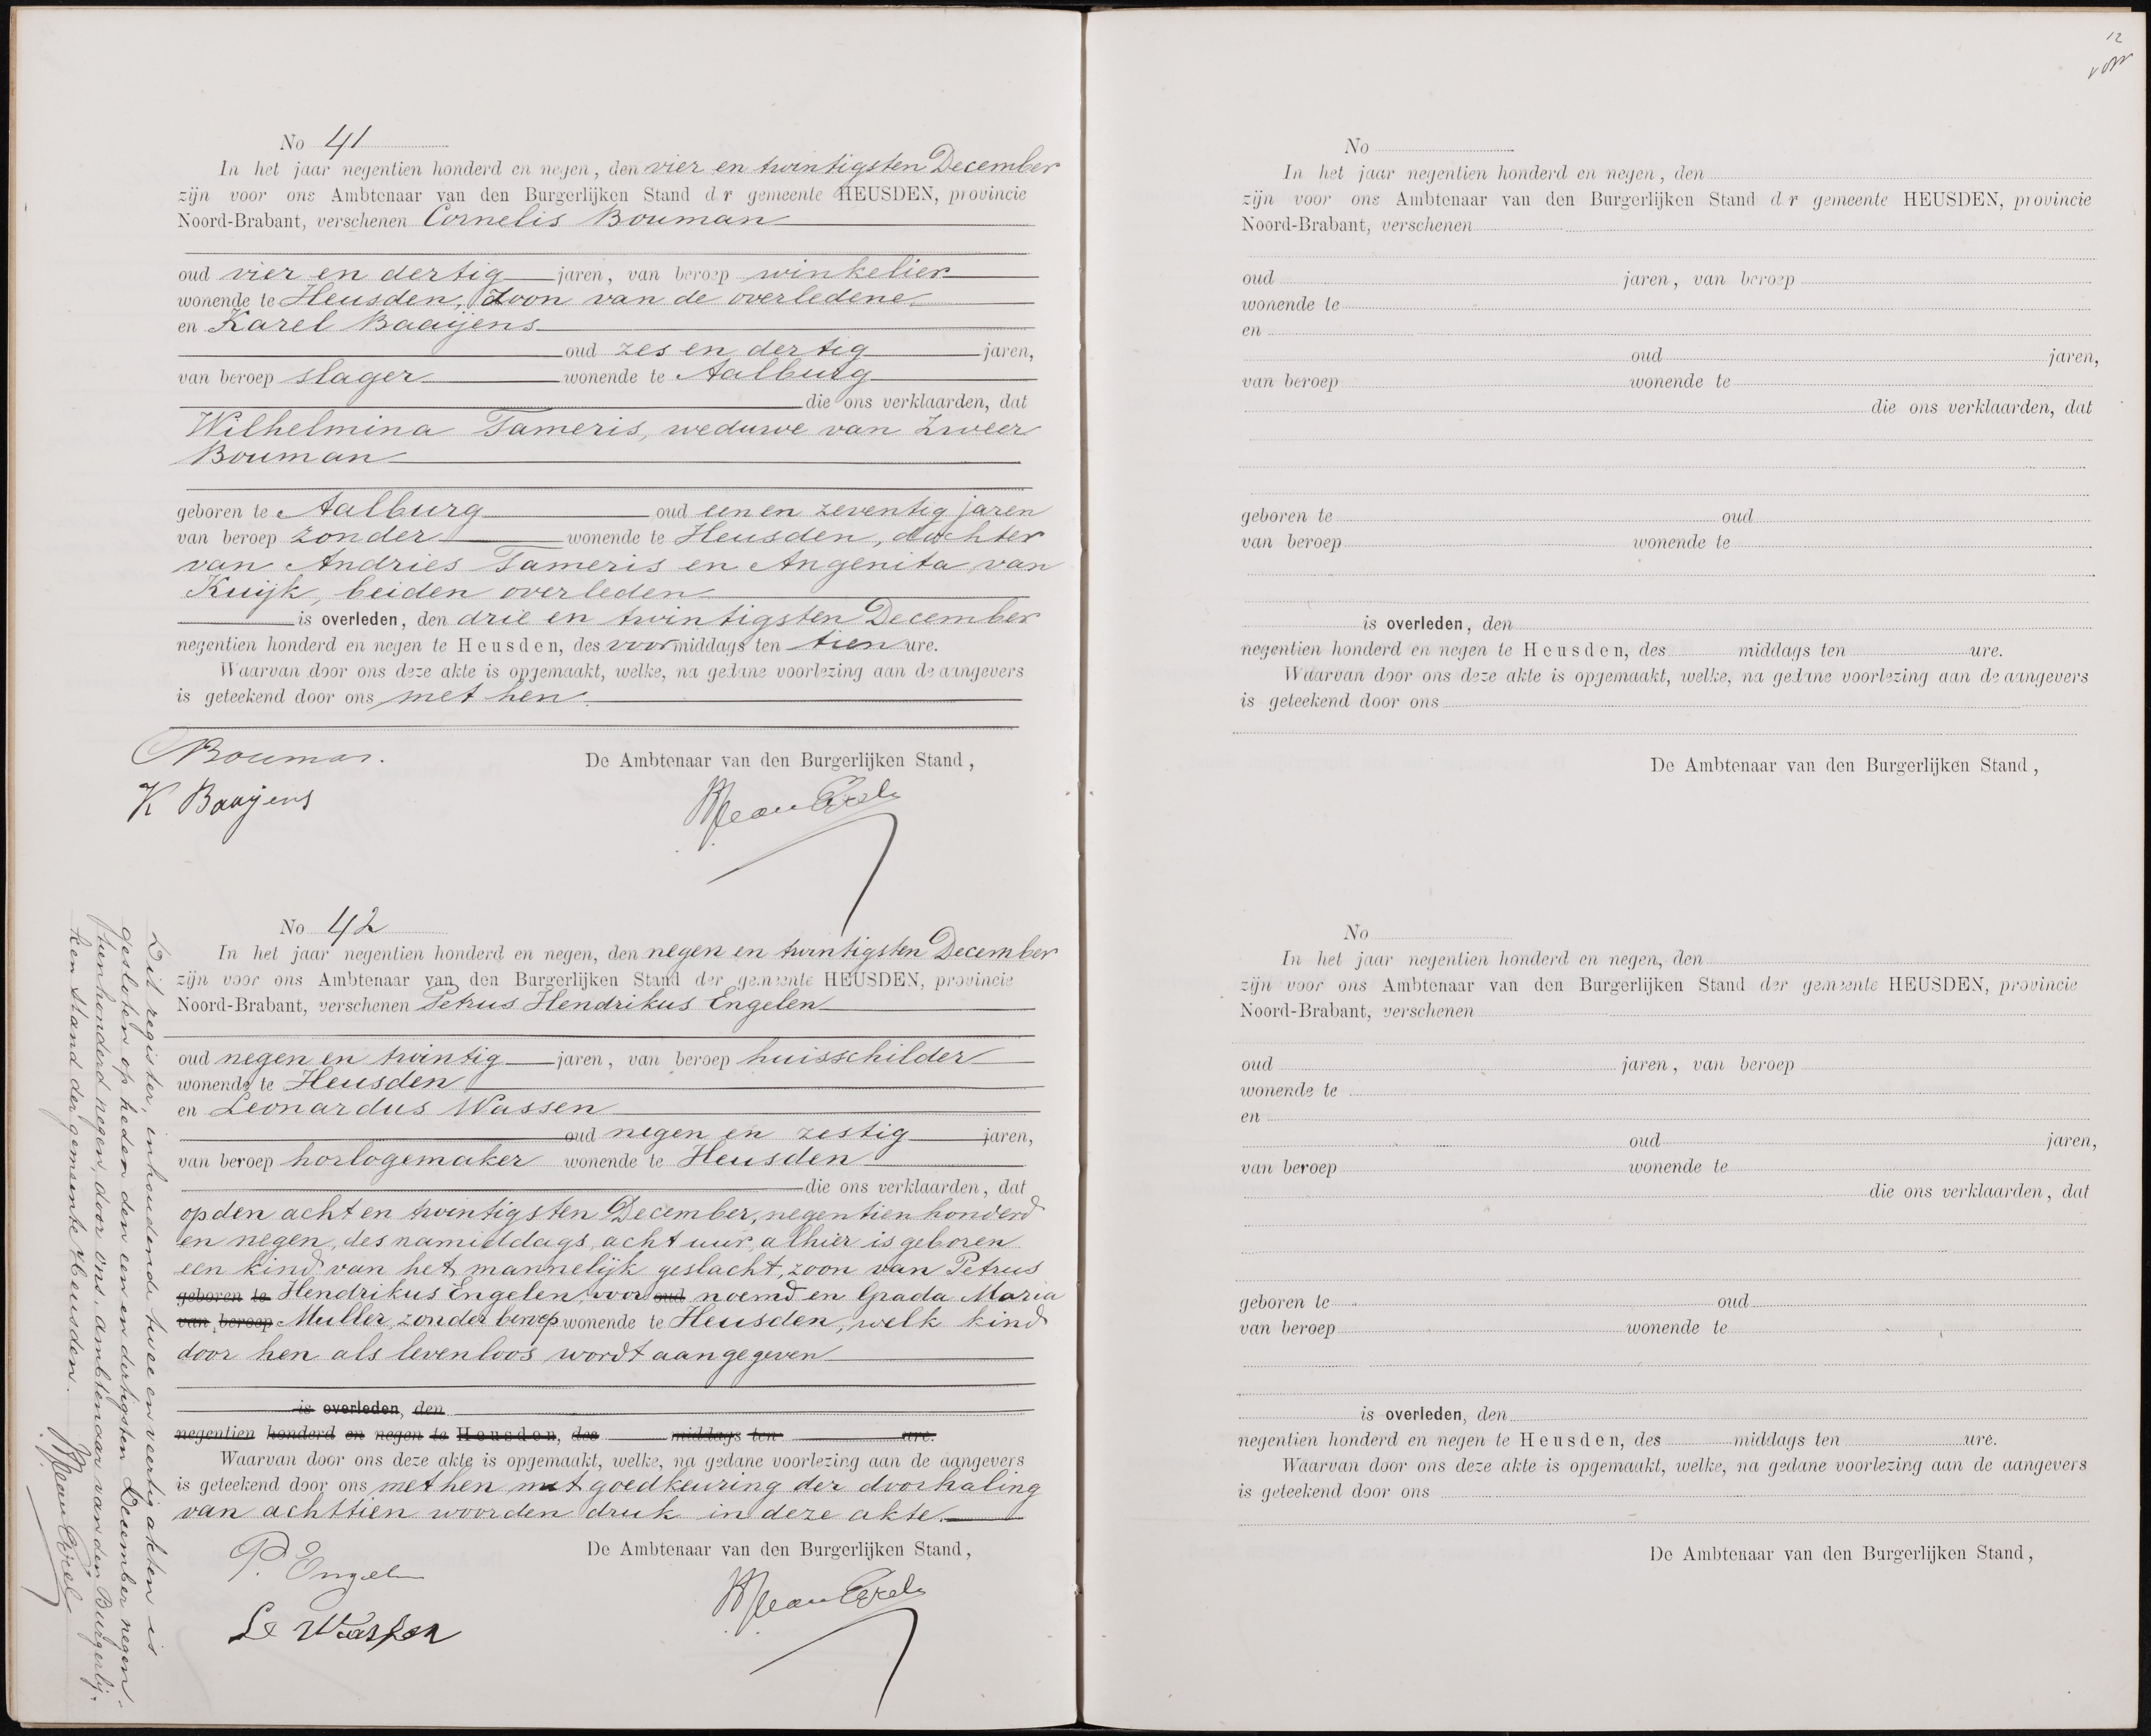 No 41
In het jaar negentien honderd en negen, den vier en twintigsten December
zijn voor ons Ambtenaar van den Burgerlijken Stand d r gemeente HEUSDEN, provincie
Noord-Brabant, verschenen Cornelis Bouman
oud vier en dertig jaren, van beroep winkelier
wonende te Heusden, zoon van de overledene
en Karel Baaijens
oud zes en dertig jaren,
van beroep slager wonende te Aalburg
die ons verklaarden, dat
Wilhelmina Tameris, weduwe van Zweer
Bouman
geboren te Aalburg oud een en zeventig jaren
van beroep zonder wonende te Heusden, dochter
van Andries Tameris en Angenita van
Kuijk, beiden overleden
is overleden, den drie en twintigsten December
negentien honderd en negen te Heusden, des voormiddags ten tien ure.
Waarvan door ons deze akte is opgemaakt, welke, na gedane voorlezing aan de aangevers
is geteekend door ons met hen.
CBouman.
De Ambtenaar van den Burgerlijken Stand,
K Baaijens
No 42
In het jaar negentien honderd en negen, den negen en twintigsten December
zijn voor ons Ambtenaar van den Burgerlijken Stand der gemeente HEUSDEN, provincie
Noord-Brabant, verschenen Petrus Hendrikus Engelen
oud negen en twintig jaren, van beroep huisschilder
wonende te Heusden
en Leonardus Wassen
oud negen en zestig jaren,
van beroep horlogemaker wonende te Heusden
die ons verklaarden, dat
op den acht en twintigsten December, negentien honderd
en negen, des namiddags, acht uur, alhier is geboren
een kind van het mannelijk geslacht, zoon van Petrus
geboren te Hendrikus Engelen, voor oud noemd en Grada Maria
van beroep Muller, zonder beroep wonende te Heusden, welk kind
door hen als levenloos wordt aangegeven
is overleden, den
negentien honderd en negen te Heusden, des middags ten ure.
Waarvan door ons deze akte is opgemaakt, welke, na gedane voorlezing aan de aangevers
is geteekend door ons met hen met goedkeuring der doorhaling
van achttien woorden druk in deze akte.
P. Engelen
De Ambtenaar van den Burgerlijken Stand,
Le Wassen
Dit register, inhoudende twee en veertig akten is
gesloten op heden den een en dertigsten December negen-
tienhonderd negen, door ons, ambtenaar van den Burgerlij-
ken stand der gemeente Heusden.
12
No
In het jaar negentien honderd en negen, den
zijn voor ons Ambtenaar van den Burgerlijken Stand d r gemeente HEUSDEN, provincie
Noord-Brabant, verschenen
oud jaren, van beroep
wonende te
en
oud jaren,
van beroep wonende te
die ons verklaarden, dat
geboren te oud
van beroep wonende te
is overleden, den
negentien honderd en negen te Heusden, des middags ten ure.
Waarvan door ons deze akte is opgemaakt, welke, na gedane voorlezing aan de aangevers
is geteekend door ons
De Ambtenaar van den Burgerlijken Stand,
No
In het jaar negentien honderd en negen, den
zijn voor ons Ambtenaar van den Burgerlijken Stand der gemeente HEUSDEN, provincie
Noord-Brabant, verschenen
oud jaren, van beroep
wonende te
en
oud jaren,
van beroep wonende te
die ons verklaarden, dat
geboren te oud
van beroep wonende te
is overleden, den
negentien honderd en negen te Heusden, des middags ten ure.
Waarvan door ons deze akte is opgemaakt, welke, na gedane voorlezing aan de aangevers
is geteekend door ons
De Ambtenaar van den Burgerlijken Stand,